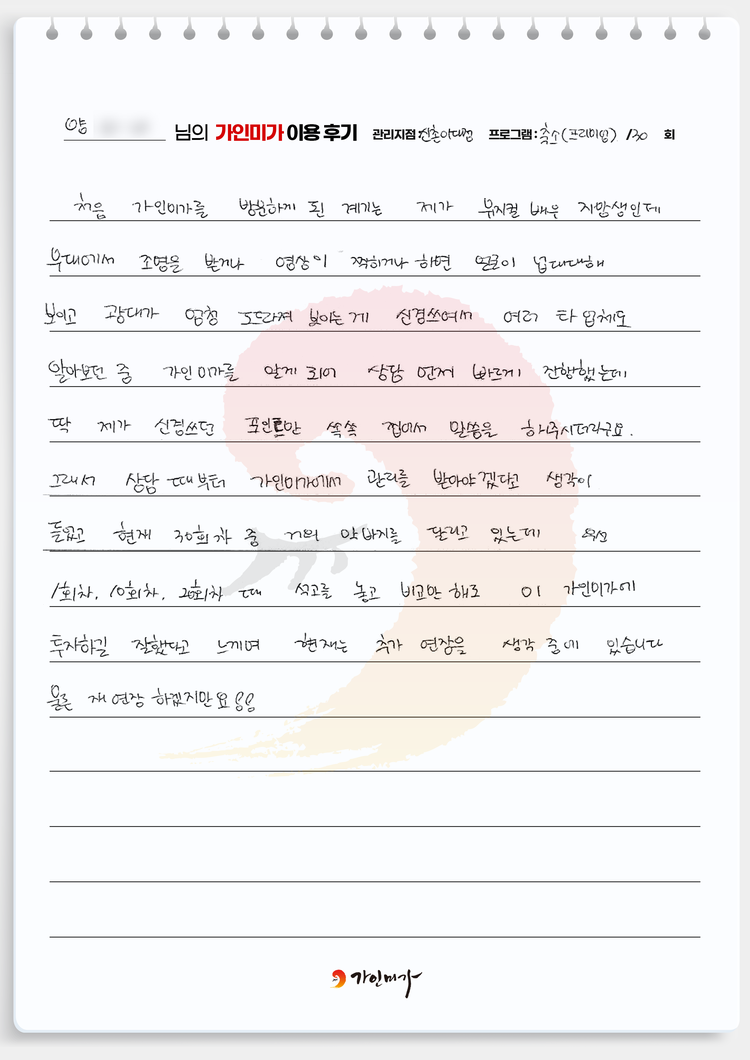 양 님의 가인미가 이용 후기 관리지점 신촌이대점 프로그램 : 축소(프리미엄) /30 회
처음 가인미가를 방문하게 된 계기는 제가 뮤지컬 배우 지망생인데
무대에서 조명을 받거나 영상이 찍히거나 하면 얼굴이 넙대대해
보이고 광대가 엄청 도드라져 보이는게 신경쓰여서 여러 타 업체도
알아보던 중 가인미가를 알게 되어 상담 먼저 빠르게 진행했는데
딱 제가 신경쓰던 포인트만 쏙쏙 집어서 말씀을 해주시더라구요.
그래서 상담 때부터 가인미가에서 관리를 받아야겠다고 생각이
들었고 현재 30회차 중 거의 막바지를 달리고 있는데 역시
1회차, 10회차, 20회차 때 석고를 놓고 비교만 해도 이 가인미가에
투자하길 잘했다고 느끼며 현재는 추가 연장을 생각 중에 있습니다
물론 재연장 하겠지만요
가인미가